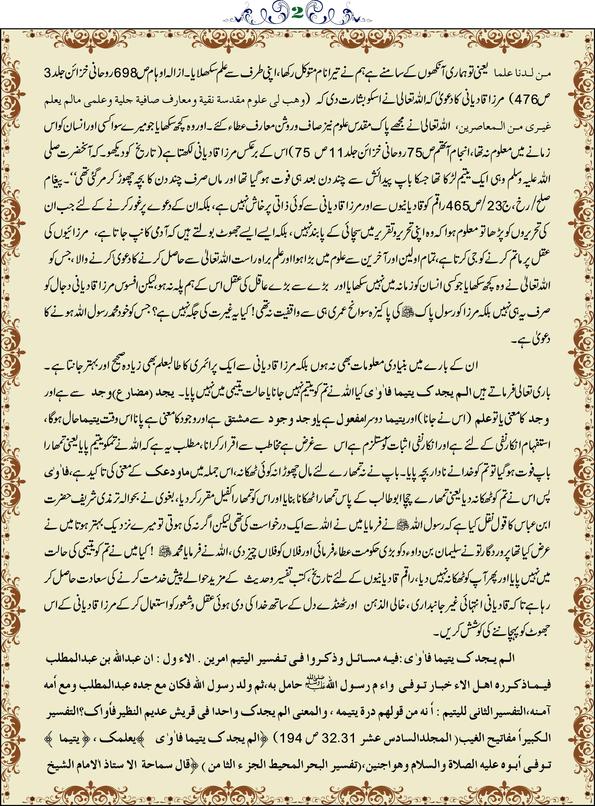 2
من لدنا علما یعنی تو ہماری آنکھوں کے سامنے ہے ہم نے تیرا نام متوکل رکھا، اپنی طرف سے علم سکھلایا۔ ازالہ اوہام ص698 روحانی خزائن جلد3
ص476) مرزا قادیانی کا دعویٰ کہ اللہ تعالیٰ نے اسکو بشارت دی کہ (وهب لی علوم مقدسة نقیة ومعارف صافیة جلیة وعلمی مالم یعلم
غیری من المعاصرین، اللہ تعالیٰ نے مجھے پاک مقدس علوم نیز صاف و روشن معارف عطا کئے۔ اور وہ کچھ سکھایا جو میرے سوا کسی اور انسان کو اس
زمانے میں معلوم نہ تھا، انجام آتھم ص75 روحانی خزائن جلد11 ص 75) اس کے برعکس مرزا قادیانی لکھتا ہے (تاریخ کو دیکھو کہ آنحضرت صلی
اللہ علیہ وسلم وہی ایک یتیم لڑکا تھا جسکا باپ پیدائش سے چند دن بعد ہی فوت ہو گیا تھا اور ماں صرف چند دن کا بچہ چھوڑ کر مر گئی تھی"۔ پیغام
صلح/ رخ، ج23/ص465 راقم کو قادیانیوں سے اور مرزا قادیانی سے کوئی ذاتی پرخاش نہیں ہے، بلکہ ان کے دعوے پر غور کرنے کے لئے جب ان
کی تحریروں کو پڑھا تو معلوم ہوا کہ وہ اپنی تحریر و تقریر میں سچائی کے پابند نہیں، بلکہ ایسے ایسے جھوٹ بولتے ہیں کہ آدمی کانپ جاتا ہے، مرزائیوں کی
عقل پر ماتم کرنے کو جی کرتا ہے، تمام اولین اور آخرین سے علوم میں بڑا ہوا اور علم براہ راست اللہ تعالیٰ سے حاصل کرنے کا دعویٰ کرنے والا، جس کو
اللہ تعالیٰ نے وہ کچھ سکھایا جو کسی انسان کو زمانہ میں نہیں سکھایا اور بڑے سے بڑے عاقل کی عقل اس کے ہم پلہ نہ ہو، لیکن افسوس مرزا قادیانی دجال کو
صرف یہ ہی نہیں بلکہ مرزا کو رسول پاک ﷺ کی پاکیزہ سوانح عمری ہی سے واقفیت نہ تھی! کیا یہ غیرت کی جگہ نہیں ہے؟ جس کو خود محمد رسول اللہ ہونے کا
دعویٰ ہے۔
ان کے بارے میں بنیادی معلومات بھی نہ ہوں بلکہ مرزا قادیانی سے ایک پرائمری کا طالبعلم بھی زیادہ صحیح اور بہتر جانتا ہے۔
باری تعالیٰ فرماتے ہیں الم یجدک یتیما فاٰوٰی کیا اللہ نے تم کو یتیم نہیں جانا یا حالت یتیمی میں نہیں پایا۔ یجد (مضارع) وجد سے ہے اور
وجد کا معنی یا تو علم (اس نے جانا) اور یتیما دوسرا مفعول ہے یا وجد وجود سے مشتق ہے اور وجود کا معنی ہے پانا اس وقت یتیما حال ہوگا،
استفہام انکار نفی کے لئے ہے اور انکار نفی اثبات کو مستلزم ہے اس سے غرض ہے مخاطب سے اقرار کرانا، مطلب یہ ہے کہ اللہ نے تمکو یتیم پایا یعنی تمھارا
باپ فوت ہو گیا تو تم کو خدا نے نادار بچہ پایا۔ باپ نے نہ تمھارے لئے مال چھوڑا نہ کوئی ٹھکانا، اس جملہ میں ماودعک کے معنی کی تاکید ہے، فاٰوٰی
پس اس نے تم کو ٹھکانا دیا یعنی تمھارے چچا ابو طالب کے پاس تمھارا ٹھکانا بنایا اور اس کو تمھارا کفیل مقرر کر دیا، بغوی نے بحوالہ ترمذی شریف حضرت
ابن عباس کا قول نقل کیا ہے کہ رسول اللہ ﷺ نے فرمایا میں نے اللہ سے ایک درخواست کی تھی لیکن اگر نہ کی ہوتی تو میرے نزدیک بہتر ہوتا میں نے
عرض کیا تھا پروردگار تو نے سلیمان بن داود کو بڑی حکومت عطاء فرمائی اور فلاں کو فلاں چیز دی، اللہ نے فرمایا محمد ﷺ ! کیا میں نے تم کو یتیمی کی حالت
میں نہیں پایا اور پھر آپ کو ٹھکانہ نہیں دیا، راقم قادیانیوں کے لئے تاریخ، کتب تفسیر و حدیث کے مزید حوالے پیش خدمت کرنے کی سعادت حاصل کر
رہا ہے تاکہ قادیانی انتہائی غیر جانبداری، خالی الذہن اور ٹھنڈے دل کے ساتھ خدا کی دی ہوئی عقل و شعور کو استعمال کر کے مرزا قادیانی کے اس
جھوٹ کو پہچاننے کی کوشش کریں۔
الم یجدک یتیما فاٰوٰی: فیه مسائل وذکروا فی تفسیر الیتیم امرین . الاول : ان عبدالله بن عبدالمطلب
فیما ذکره اهل الاخبار توفی واءم رسول الله ﷺ حامل به، ثم ولد رسول الله فکان مع جده عبدالمطلب ومع أمه
آمنه، التفسیر الثانی للیتیم : أنه من قولهم درة یتیمه ، والمعنی الم یجدک واحدا فی قریش عدیم النظیر فآواک؟ التفسیر
الکبیر أ مفاتیح الغیب (المجلد السادس عشر 32.31 ص 194) ﴿الم یجدک یتیما فاٰوٰی ﴾ یعلمک ، ﴿یتیما﴾
توفی أبوه علیه الصلاة والسلام وهو اجنین، (تفسیر البحر المحیط الجزء الثامن) ﴿قال سماحة الاستاذ الامام الشیخ